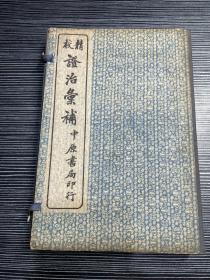 精校
證治彙補
中原書局印行